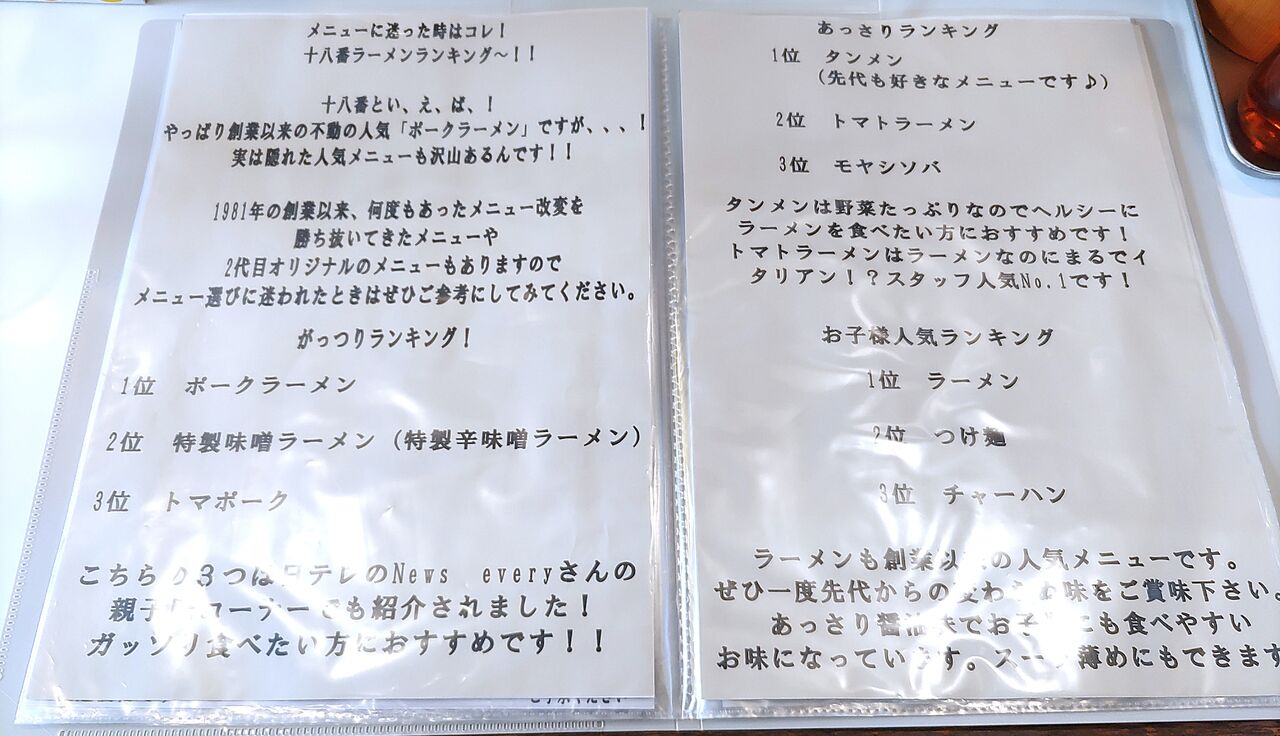 メニューに迷った時はコレ！
十八番ラーメンランキング～！！
十八番とい、え、ば、！
やっぱり創業以来の不動の人気「ポークラーメン」ですが、、、！
実は隠れた人気メニューも沢山あるんです！！
1981年の創業以来、何度もあったメニュー改変を
勝ち抜いてきたメニューや
2代目オリジナルのメニューもありますので
メニュー選びに迷われたときはぜひご参考にしてみてください。
がっつりランキング！
1位　ポークラーメン
2位　特製味噌ラーメン（特製辛味噌ラーメン）
3位　トマポーク
こちらの３つは日テレのNews　everyさんの
親子 コーナーでも紹介されました！
ガッツリ食べたい方におすすめです！！
あっさりランキング
1位　タンメン
（先代も好きなメニューです♪）
2位　トマトラーメン
3位　モヤシソバ
タンメンは野菜たっぷりなのでヘルシーに
ラーメンを食べたい方におすすめです！
トマトラーメンはラーメンなのにまるでイ
タリアン！？スタッフ人気No.1です！
お子様人気ランキング
1位　ラーメン
2位　つけ麺
3位　チャーハン
ラーメンも創業以来の人気メニューです。
ぜひ一度先代からの変わらぬ味をご賞味下さい。
あっさり醤油味でお子 にも食べやすい
お味になっています。スープ薄めにもできます